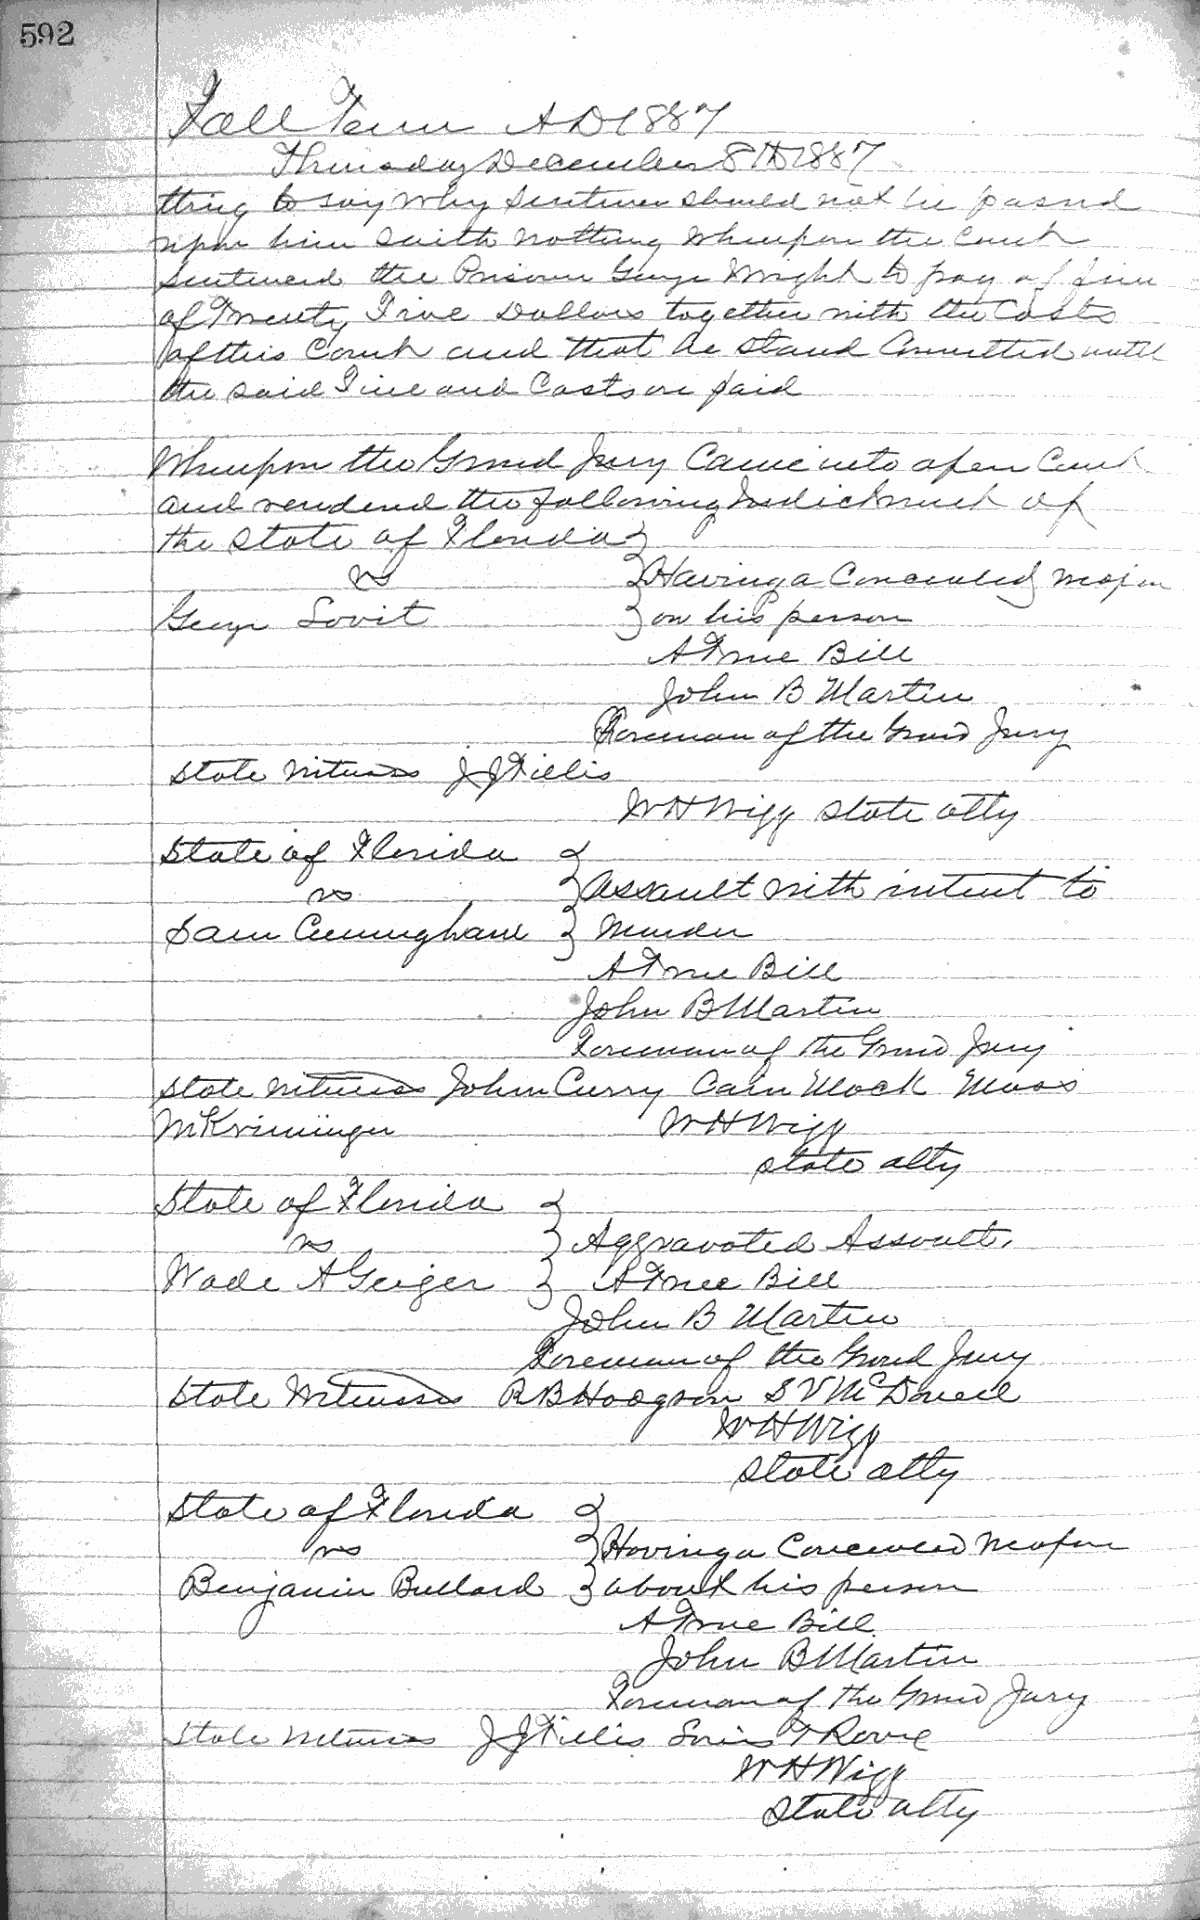 592
Fall Term AD 1887
Thursday December 8th 1887
thing to say why Sentence should not be passed
upon him saith nothing Whereupon the Court
sentenced the Prisoner George Wright to pay a fine
of Twenty Five Dollars together with the Costs
of this Court and that he stand Committed until
the said Fine and Costs are paid
Whereupon the Grand Jury Came into open Court
and rendered the following Indictment of
the State of Florida
vs
Having a Concealed weapon
George Lovit
on his person
A True Bill
John B Martin
Foreman of the Grand Jury
State Witness J J
W H Wigg State atty
State of Florida
vs
Assault with intent to
Sam Cunningham
Murder
A True Bill
John B Martin
Foreman of the Grand Jury
State Witness John Curry Cain Mock Moos
McKrimminger
W H Wigg
State atty
State of Florida
vs
Aggravated Assault,
Wade A Geiger
A True Bill
John B Martin
Foreman of the Grand Jury
State Witnesses R B Hodgson S V McDowell
W H Wigg
State atty
State of Florida
vs
Having a Concealed Weapon
Benjamin Bullard
about his person
A True Bill.
John B Martin
Foreman of the Grand Jury
State Witness J J
W H Wigg
State atty